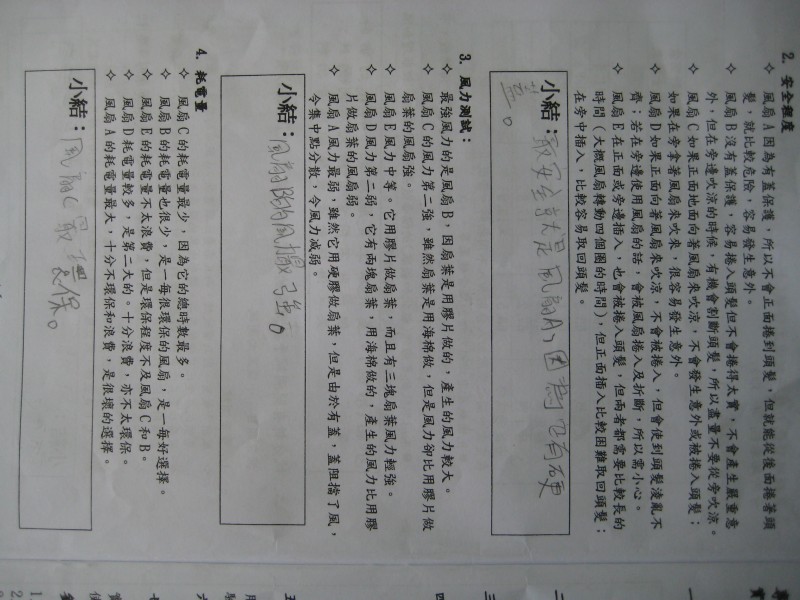 2. 安全程度
✧ 風扇 A 因為有蓋保護，所以不會正面捲到頭髮，但就能從後面捲著頭
髮，就比較危險，容易發生意外。
✧ 風扇 B 沒有蓋保護，容易捲入頭髮但不會捲得太實，不會產生嚴重意
外，但在旁邊吹涼的時候，有機會割斷頭髮，所以盡量不要從旁吹涼。
✧ 風扇 C 如果正面地面向著風扇來吹涼，不會發生意外或被捲入頭髮；
如果在旁拿著風扇來吹來，很容易發生意外。
✧ 風扇 D 如果正面向著風扇來吹涼，不會被捲入，但會使到頭髮淩亂不
齊；若在旁邊使用風扇的話，會被風扇捲入及折斷，所以需小心。
✧ 風扇 E 在正面或旁邊插入，也會被捲入頭髮，但兩者都需要比較長的
時間（大概風扇轉動四個圈的時間），但正面插入比較困難取回頭髮；
在旁中插入，比較容易取回頭髮。
小結：最安全就是風扇A，因為它有硬
蓋。
3. 風力測試：
✧ 最強風力的是風扇 B，因扇葉是用膠片做的，產生的風力較大。
✧ 風扇 C 的風力第二強，雖然扇葉是用海棉做，但是風力卻比用膠片做
扇葉的風扇強。
✧ 風扇 E 風力中等。它用膠片做扇葉，而且有三塊扇葉風力輕強。
✧ 風扇 D 風力第二弱，它有兩塊扇葉，用海棉做的，產生的風力比用膠
片做扇葉的風扇弱。
✧ 風扇 A 風力最弱，雖然它用硬膠做扇葉，但是由於有蓋，蓋阻擋了風，
令集中點分散，令風力減弱。
小結：風扇B的風最強。
4. 耗電量
✧ 風扇 C 的耗電量最少，因為它的總時數最多。
✧ 風扇 B 的耗電量也很少，是一每很環保的風扇，是一每好選擇。
✧ 風扇 E 的耗電量不太浪費，但是環保程度不及風扇 C 和 B。
✧ 風扇 D 耗電量較多，是第二大的。十分浪費，亦不太環保。
✧ 風扇 A 的耗電量最大，十分不環保和浪費，是很壞的選擇。
小結：風扇C最環保。
一
二
三
四
五
六
七
1.
2